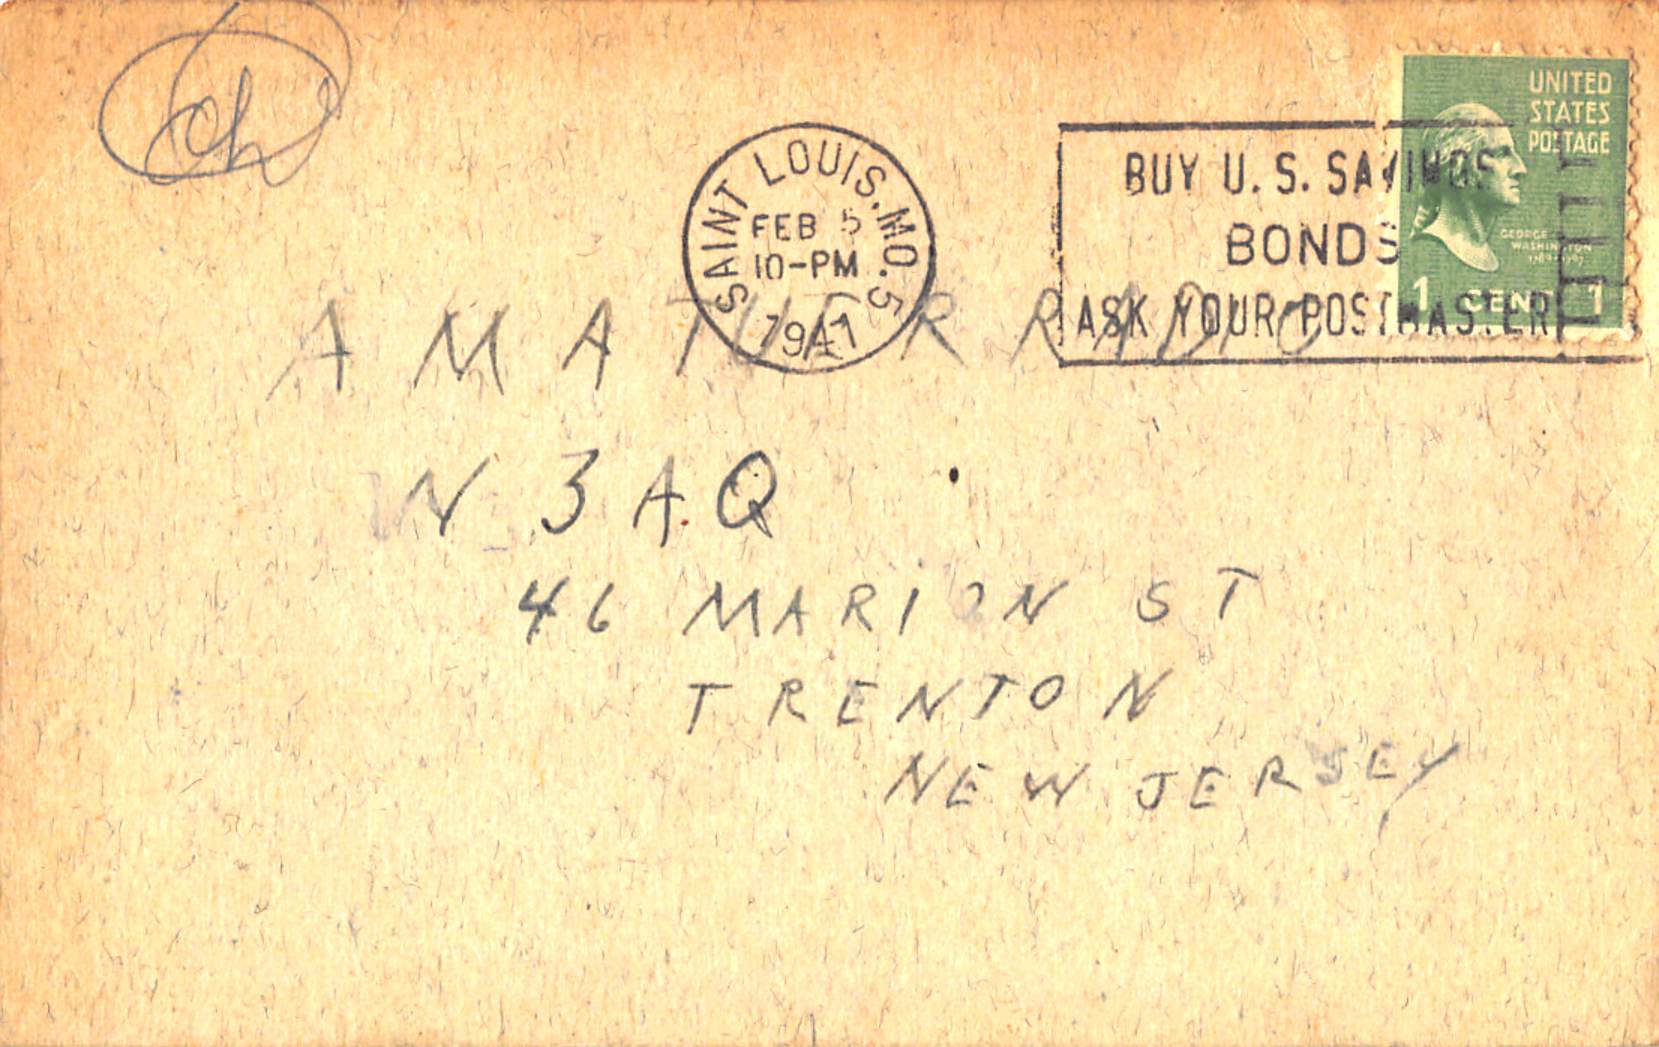 ch
SAINT LOUIS, MO. 5
FEB 5
10-PM
1947
BUY U. S. SAVINGS
BONDS
ASK YOUR POSTMASTER
UNITED
STATES
POSTAGE
GEORGE
WASHINGTON
1789-1797
1 CENT 1
AMATUER RADIO
W3AQ
46 MARION ST
TRENTON
NEW JERSEY